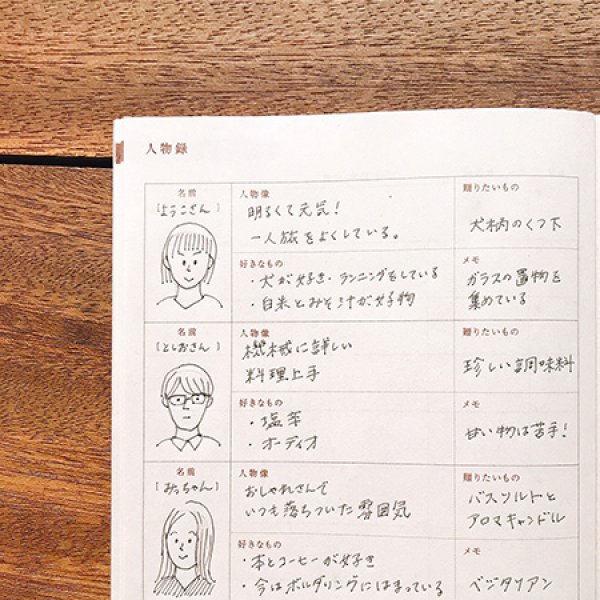 人物録
名前
[ようこさん]
人物像
明るくて元気!
一人旅をよくしている。
贈りたいもの
犬柄のくつ下
好きなもの
・犬が好き・ランニングをしている
・白米とみそ汁が好物
メモ
ガラスの置物を
集めている
名前
[としおさん]
人物像
機械に詳しい
料理上手
贈りたいもの
珍しい調味料
好きなもの
・塩辛
・オーディオ
メモ
甘い物は苦手!
名前
[みっちゃん]
人物像
おしゃれさんで
いつも落ちついた雰囲気
贈りたいもの
バスソルトと
アロマキャンドル
好きなもの
・本とコーヒーが好き
・今はボルダリングにはまっている
メモ
ベジタリアン